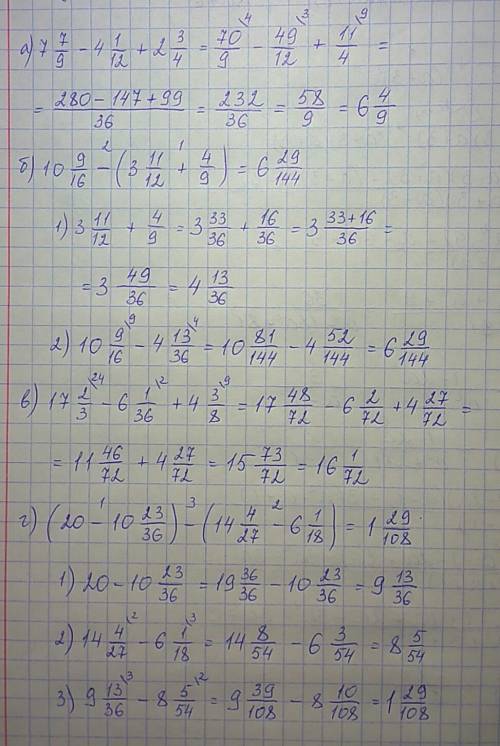 а) 7 7/9 - 4 1/12 + 2 3/4 = 70/9 \4 - 49/12 \3 + 11/4 \9 =
= 280 - 147 + 99/36 = 232/36 = 58/9 = 6 4/9
б) 10 9/16 -² (3 11/12 +¹ 4/9) = 6 29/144
1) 3 11/12 + 4/9 = 3 33/36 + 16/36 = 3 33+16/36 =
= 3 49/36 = 4 13/36
2) 10 9/16 \9 - 4 13/36 \4 = 10 81/144 - 4 52/144 = 6 29/144
в) 17 2/3 \24 - 6 1/36 \2 + 4 3/8 \9 = 17 48/72 - 6 2/72 + 4 27/72 =
= 11 46/72 + 4 27/72 = 15 73/72 = 16 1/72
г) (20 -¹ 10 23/36) -³ (14 4/27 -² 6 1/18) = 1 29/108
1) 20 - 10 23/36 = 19 36/36 - 10 23/36 = 9 13/36
2) 14 4/27 \2 - 6 1/18 \3 = 14 8/54 - 6 3/54 = 8 5/54
3) 9 13/36 \3 - 8 5/54 \2 = 9 39/108 - 8 10/108 = 1 29/108